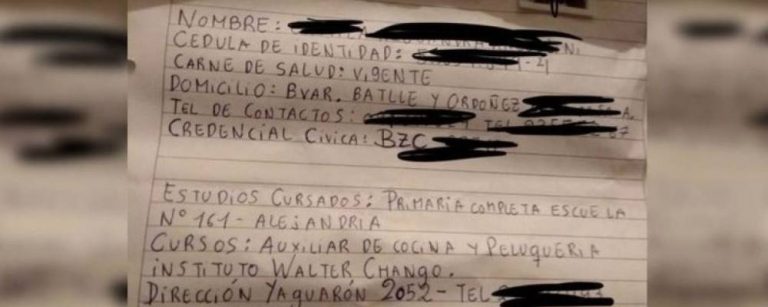 NOMBRE:
CEDULA DE IDENTIDAD: -4
CARNE DE SALUD: VIGENTE
DOMICILIO: BVAR. BATLLE Y ORDOÑEZ
TEL DE CONTACTOS: TEL
CREDENCIAL CIVICA: BZC
ESTUDIOS CURSADOS: PRIMARIA COMPLETA ESCUELA
Nº 161 - ALEJANDRIA
CURSOS: AUXILIAR DE COCINA Y PELUQUERIA
INSTITUTO WALTER CHANGO.
DIRECCIÓN YAGUARÓN 2052 - TEL